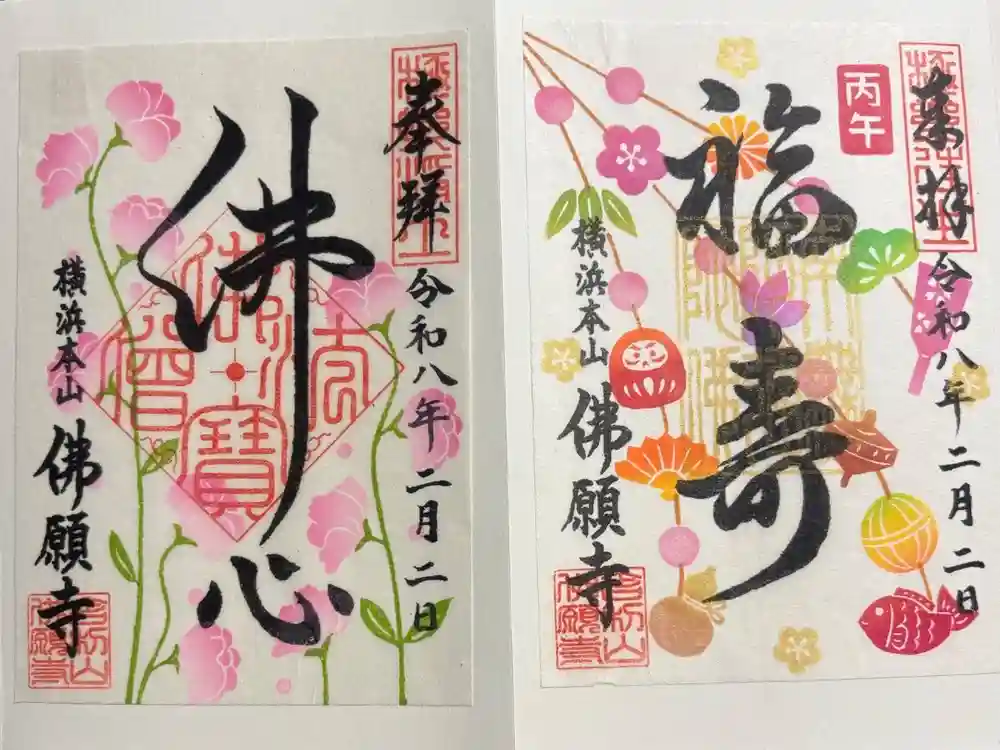 奉拜
令和八年二月二日
佛心
佛法僧寶
横浜本山
佛願寺
丙午
奉拜
令和八年二月二日
福寿
横浜本山
佛願寺